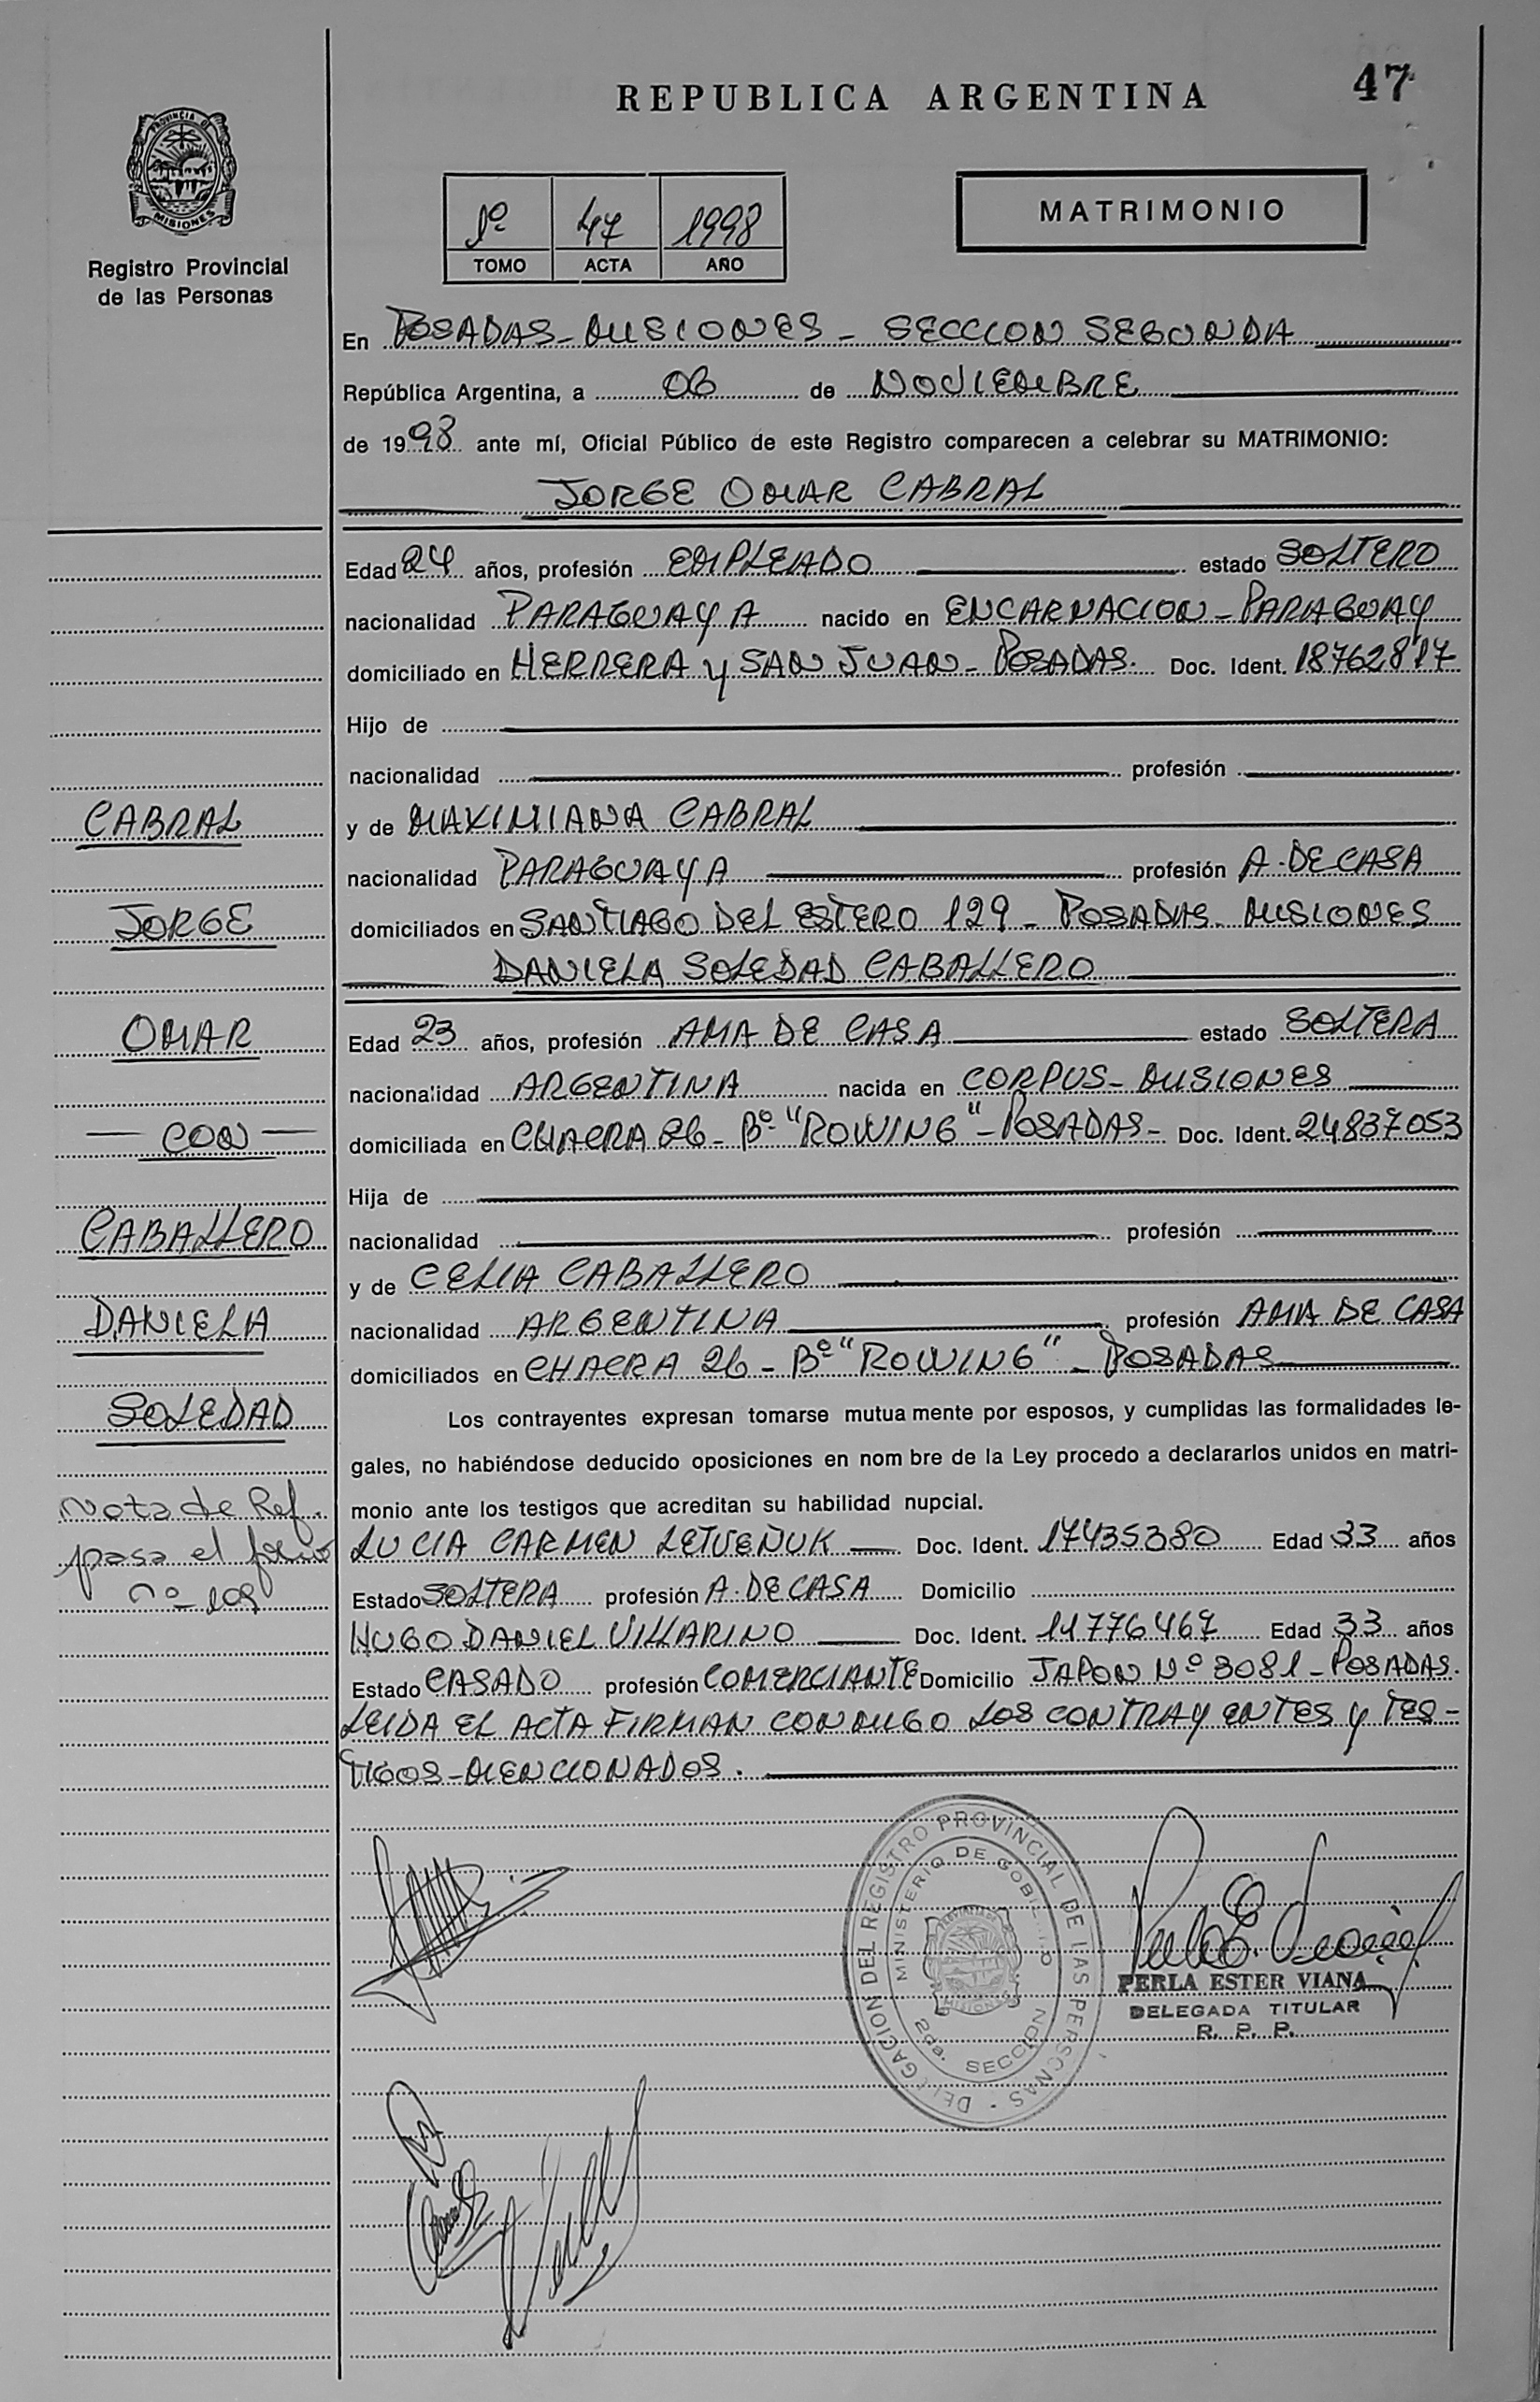 REPUBLICA ARGENTINA
47
PROVINCIA DE
MISIONES
Registro Provincial
de las Personas
1º 47 1998
TOMO ACTA AÑO
MATRIMONIO
En POSADAS-MISIONES - SECCION SEGUNDA
República Argentina, a 06 de NOVIEMBRE
de 1998 ante mí, Oficial Público de este Registro comparecen a celebrar su MATRIMONIO:
JORGE OMAR CABRAL
Edad 24 años, profesión EMPLEADO estado SOLTERO
nacionalidad PARAGUAYA nacido en ENCARNACION-PARAGUAY
domiciliado en HERRERA y SAN JUAN-POSADAS. Doc. Ident. 18762817
Hijo de
nacionalidad profesión
y de MAXIMIANA CABRAL
nacionalidad PARAGUAYA profesión A. DE CASA
domiciliados en SANTIAGO DEL ESTERO 129-POSADAS-MISIONES
DANIELA SOLEDAD CABALLERO
Edad 23 años, profesión AMA DE CASA estado SOLTERA
nacionalidad ARGENTINA nacida en CORPUS-MISIONES
domiciliada en CHACRA 26-Bº "ROWING"-POSADAS- Doc. Ident. 24837053
Hija de
nacionalidad profesión
y de CELIA CABALLERO
nacionalidad ARGENTINA profesión AMA DE CASA
domiciliados en CHACRA 26-Bº "ROWING"-POSADAS
Los contrayentes expresan tomarse mutua mente por esposos, y cumplidas las formalidades le-
gales, no habiéndose deducido oposiciones en nom bre de la Ley procedo a declararlos unidos en matri-
monio ante los testigos que acreditan su habilidad nupcial.
LUCIA CARMEN LETVEÑUK Doc. Ident. 17435380 Edad 33 años
Estado SOLTERA profesión A. DE CASA Domicilio
HUGO DANIEL VILLARINO Doc. Ident. 11776467 Edad 33 años
Estado CASADO profesión COMERCIANTE Domicilio JAPON Nº 3081-POSADAS.
LEIDA EL ACTA FIRMAN CONMIGO LOS CONTRAYENTES y TES-
TIGOS-MENCIONADOS.
CABRAL
JORGE
OMAR
— CON —
CABALLERO
DANIELA
SOLEDAD
Nota de Ref.
pasa el folio
nº 109
DELEGACION DEL REGISTRO PROVINCIAL DE LAS PERSONAS
MINISTERIO DE GOBIERNO
2da. SECCION
MISIONES
PERLA ESTER VIANA
DELEGADA TITULAR
R. P. P.